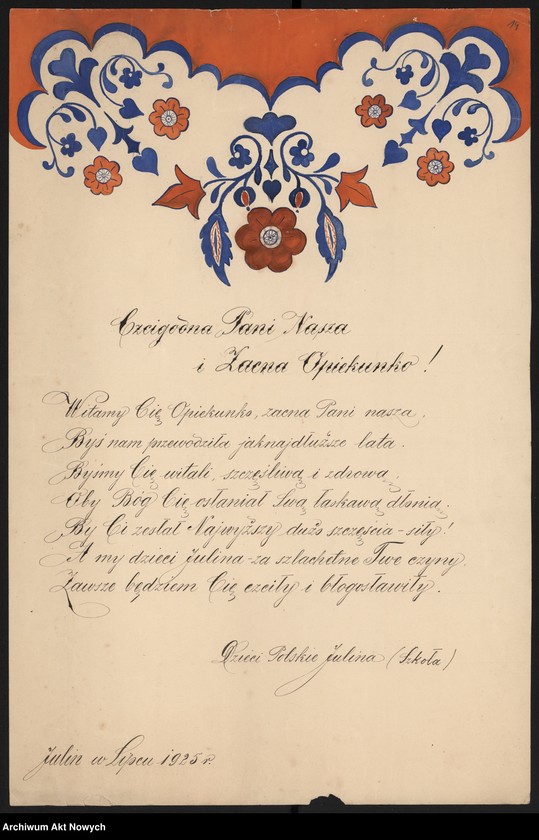 Czcigodna Pani Nasza
i Zacna Opiekunko!
Witamy Cię Opiekunko, zacna Pani nasza.
Byś nam przewodziła jaknajdłuższe lata.
Byśmy Cię witali, szczęśliwą i zdrową,
Oby Bóg Cię osłaniał Swą łaskawą dłonią.
By Ci zesłał Najwyższy dużo szczęścia - siły!
A my dzieci Julina - za szlachetne Twe czyny.
Zawsze będziem Cię czciły i błogosławiły.
Dzieci Polskie Julina (Szkoła)
Julin w Lipcu 1925 r.
Archiwum Akt Nowych